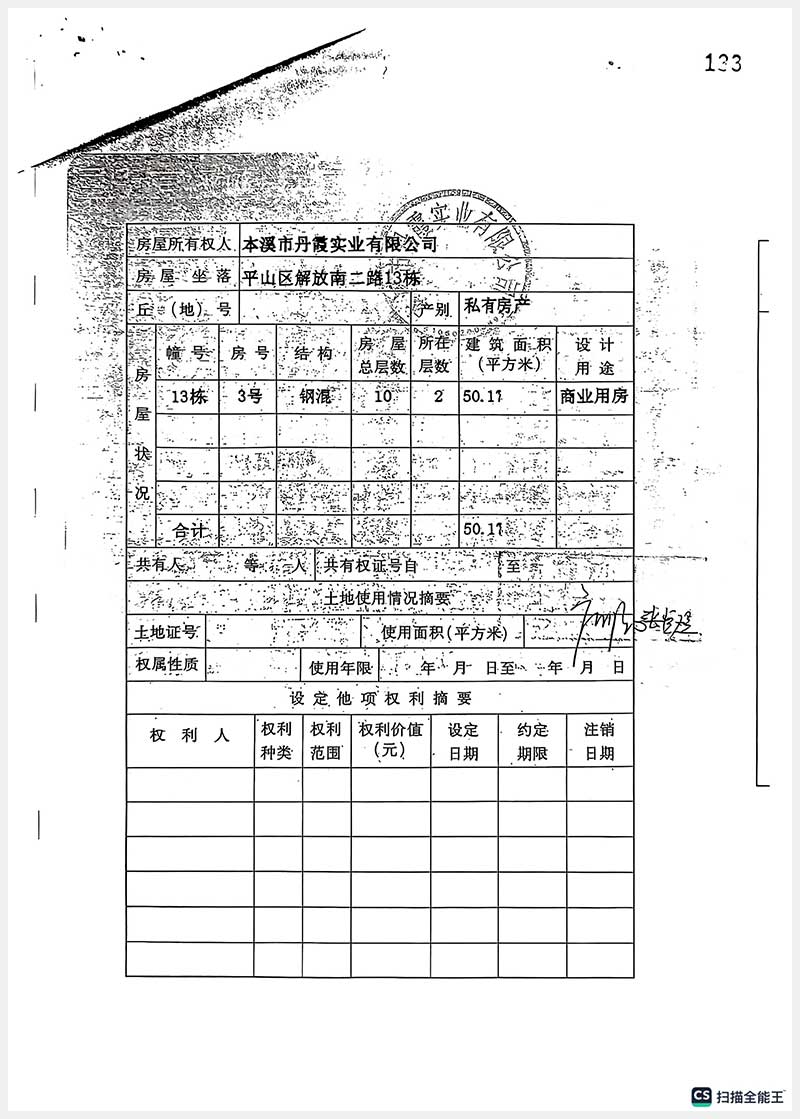 133
霞实业有限公司
房屋所有权人 本溪市丹霞实业有限公司
房屋坐落 平山区解放南二路13栋
丘(地)号 产别 私有房产
房屋状况
幢号 房号 结构 房屋总层数 所在层数 建筑面积(平方米) 设计用途
13栋 3号 钢混 10 2 50.11 商业用房
合计 50.11
共有人 等 人 共有权证号自 至
土地使用情况摘要
土地证号 使用面积(平方米)
权属性质 使用年限 年 月 日至 年 月 日
设定他项权利摘要
权利人 权利种类 权利范围 权利价值(元) 设定日期 约定期限 注销日期
CS 扫描全能王